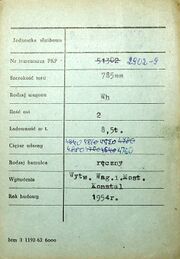 Jednostka służbowa
Nr inwentarza PKP 51302 2902-8
Szerokość toru 785mm
Rodzaj wagonu Wh
Ilość osi 2
Ładowność w t. 8,5t.
Ciężar własny
Rodzaj hamulca ręczny
Wytwórnia Wytw. Wag.i.Most.
Konstal
Rok budowy 1954r.
btm 3 1192-63 6000